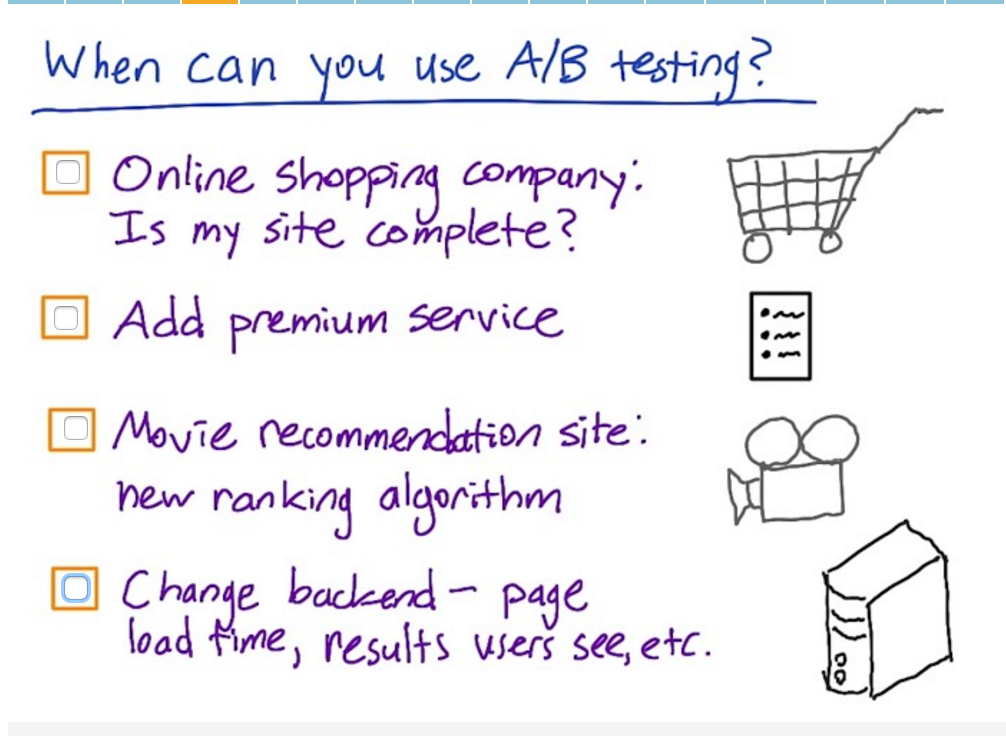 When can you use A/B testing?
Online shopping company:
Is my site complete?
Add premium service
Movie recommendation site:
new ranking algorithm
Change backend - page
load time, results users see, etc.